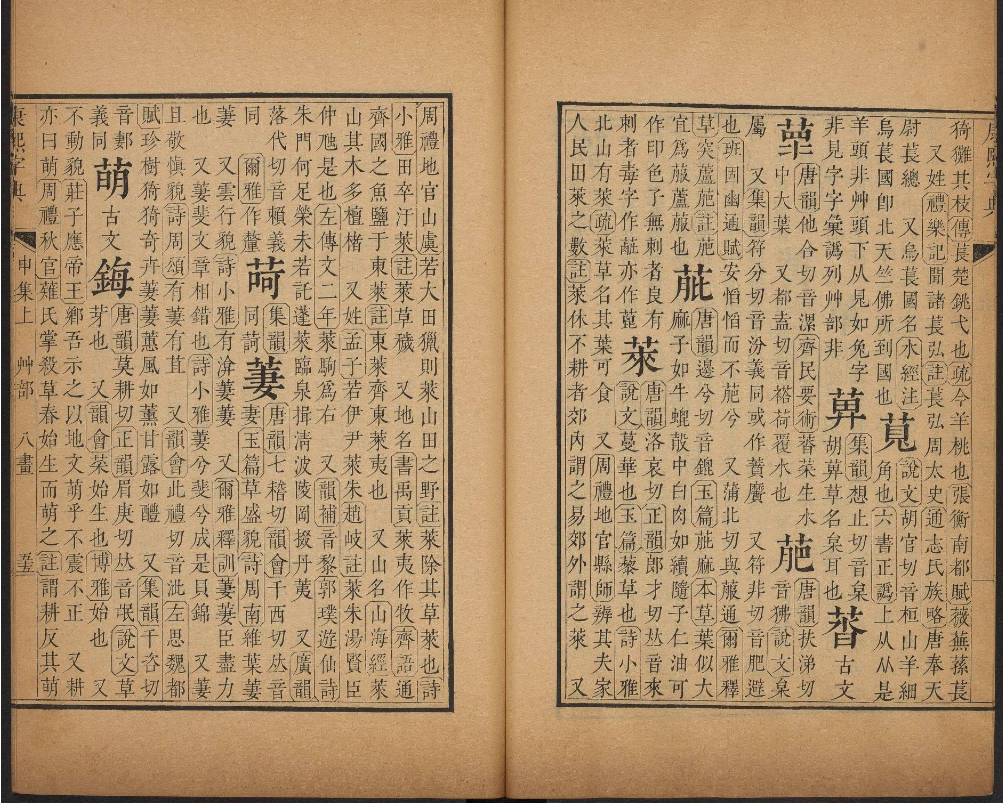 猗儺其枝傳萇楚銚弋也疏今羊桃也張衡南都賦薇蕪蓀萇
又姓禮樂記聞諸萇弘註萇弘周太史通志氏族略唐奉天
尉萇總 又烏萇國名水經注 萈 說文胡官切音桓山羊細
烏萇國卽北天竺佛所到國也 角也六書正譌上从从是
羊頭非艸頭下从見如兔字 萛 集韻想止切音枲
非見字字彙譌列艸部非 胡萛草名枲耳也 萻 古文
唐韻他合切音漯齊民要術萻菜生水
中大葉 又都盍切音褡荷覆水也 萉 唐韻扶涕切
音狒說文枲
屬 又集韻符分切音汾義同或作蕡黂 又符非切音肥避
也班固幽通賦安慆慆而不萉兮 又蒲北切與菔通爾雅釋
草突蘆萉註萉
宜爲菔蘆菔也 唐韻邊兮切音鎞玉篇萞麻本草葉似大
麻子如牛蜱㪚中白肉如續隨子仁油可
作印色子無刺者良有
刺者毒字作蓖亦作萆 萊 唐韻洛哀切正韻郎才切𠀤音來
說文蔓華也玉篇藜草也詩小雅
北山有萊疏萊草名其葉可食 又周禮地官縣師辨其夫家
人民田萊之數註萊休不耕者郊內謂之易郊外謂之萊 又
周禮地官山虞若大田獵則萊山田之野註萊除其草萊也詩
小雅田卒汙萊註萊草穢 又地名書禹貢萊夷作牧齊語通
齊國之魚鹽于東萊註東萊齊東萊夷也 又山名山海經萊
山其木多檀楮 又姓孟子若伊尹萊朱趙岐註萊朱湯賢臣
仲虺是也左傳文二年萊駒爲右 又韻補音黎郭璞遊仙詩
朱門何足榮未若託蓬萊臨泉揖淸波陵岡掇丹荑 又廣韻
落代切音賴義
同 爾雅作釐 萮 集韻
同荷 萋 唐韻七稽切韻會千西切𠀤音
妻玉篇草盛貌詩周南維葉萋
萋 又雲行貌詩小雅有渰萋萋 又爾雅釋訓萋萋臣盡力
也 又萋斐文章相錯也詩小雅萋兮斐兮成是貝錦 又萋
且敬愼貌詩周頌有萋有苴 又韻會此禮切音泚左思魏都
賦珍樹猗猗奇卉萋萋蕙風如薰甘露如醴 又集韻千咨切
音郪
義同 萌 古文 唐韻莫耕切正韻眉庚切𠀤音氓說文草
芽也 又韻會菜始生也博雅始也 又
不動貌莊子應帝王鄕吾示之以地文萌乎不震不正 又耕
亦曰萌周禮秋官薙氏掌殺草春始生而萌之註謂耕反其萌
康熙字典 申集上 艸部 八畫